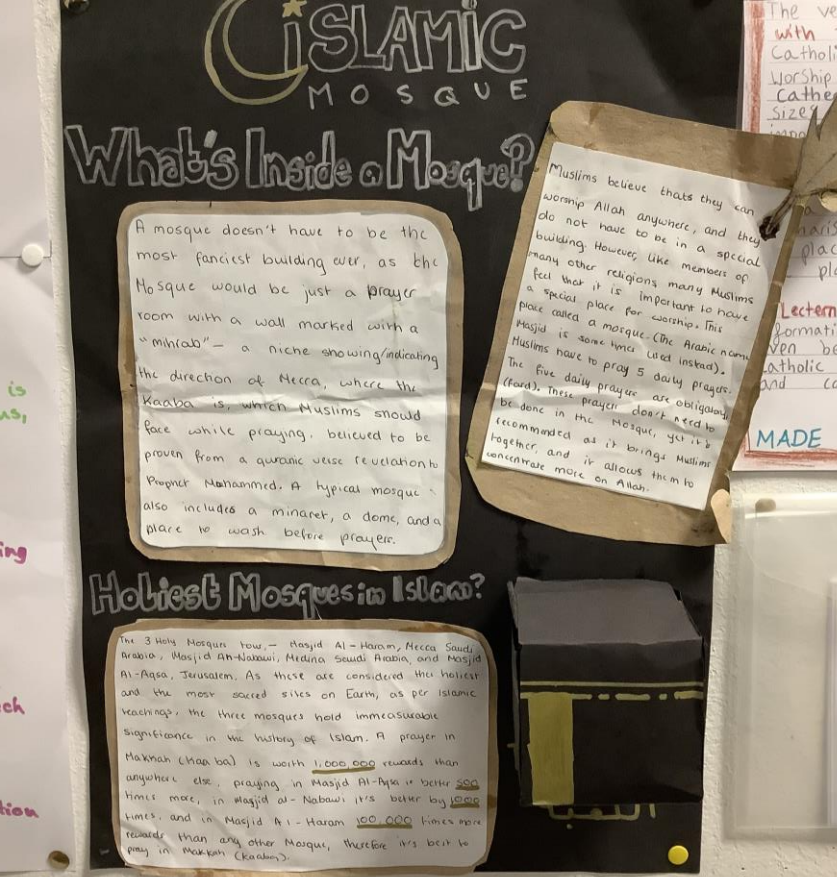 iSLAMiC
MOSQUE
What's Inside a Mosque?
A mosque doesn't have to be the
most fanciest building ever, as the
Mosque would be just a prayer
room with a wall marked with a
"mihrab" – a niche showing/indicating
the direction of Mecca, where the
Kaaba is, which Muslims should
face while praying, believed to be
proven from a quranic verse revelation to
Prophet Mohammed. A typical mosque
also includes a minaret, a dome, and a
place to wash before prayers.
Muslims believe thats they can
worship Allah anywhere, and they
do not have to be in a special
building. However, like members of
many other religions many Muslims
feel that it is important to have
a special place for worship. This
place called a mosque. (The Arabic name
Masjid is some times used instead).
Muslims have to pray 5 daily prayers.
The five daily prayers are obligatory
(fard). These prayers don't need to
be done in the Mosque, yet it's
recommended as it brings Muslims
together, and it allows them to
concentrate more on Allah.
Holiest Mosques in Islam?
The 3 Holy Mosques – Masjid Al-Haram, Mecca Saudi
Arabia, Masjid An-Nabawi, Medina Saudi Arabia, and Masjid
Al-Aqsa, Jerusalem. As these are considered the holiest
and the most sacred sites on Earth, as per Islamic
teachings, the three mosques hold immeasurable
significance in the history of Islam. A prayer in
Makkah (Kaaba) is worth 1,000,000 rewards than
anywhere else, praying in Masjid Al-Aqsa is better 500
times more, in Masjid al-Nabawi it's better by 1000
times, and in Masjid Al-Haram 100,000 times more
rewards than any other Mosque, therefore it's best to
pray in Makkah (Kaaba).
الكعبة
The
with
Catholi
Worship
Cathe
sizes
plac
Lectern
formati
ven be
atholic
and co
MADE
is
us,
ing
ch
tion